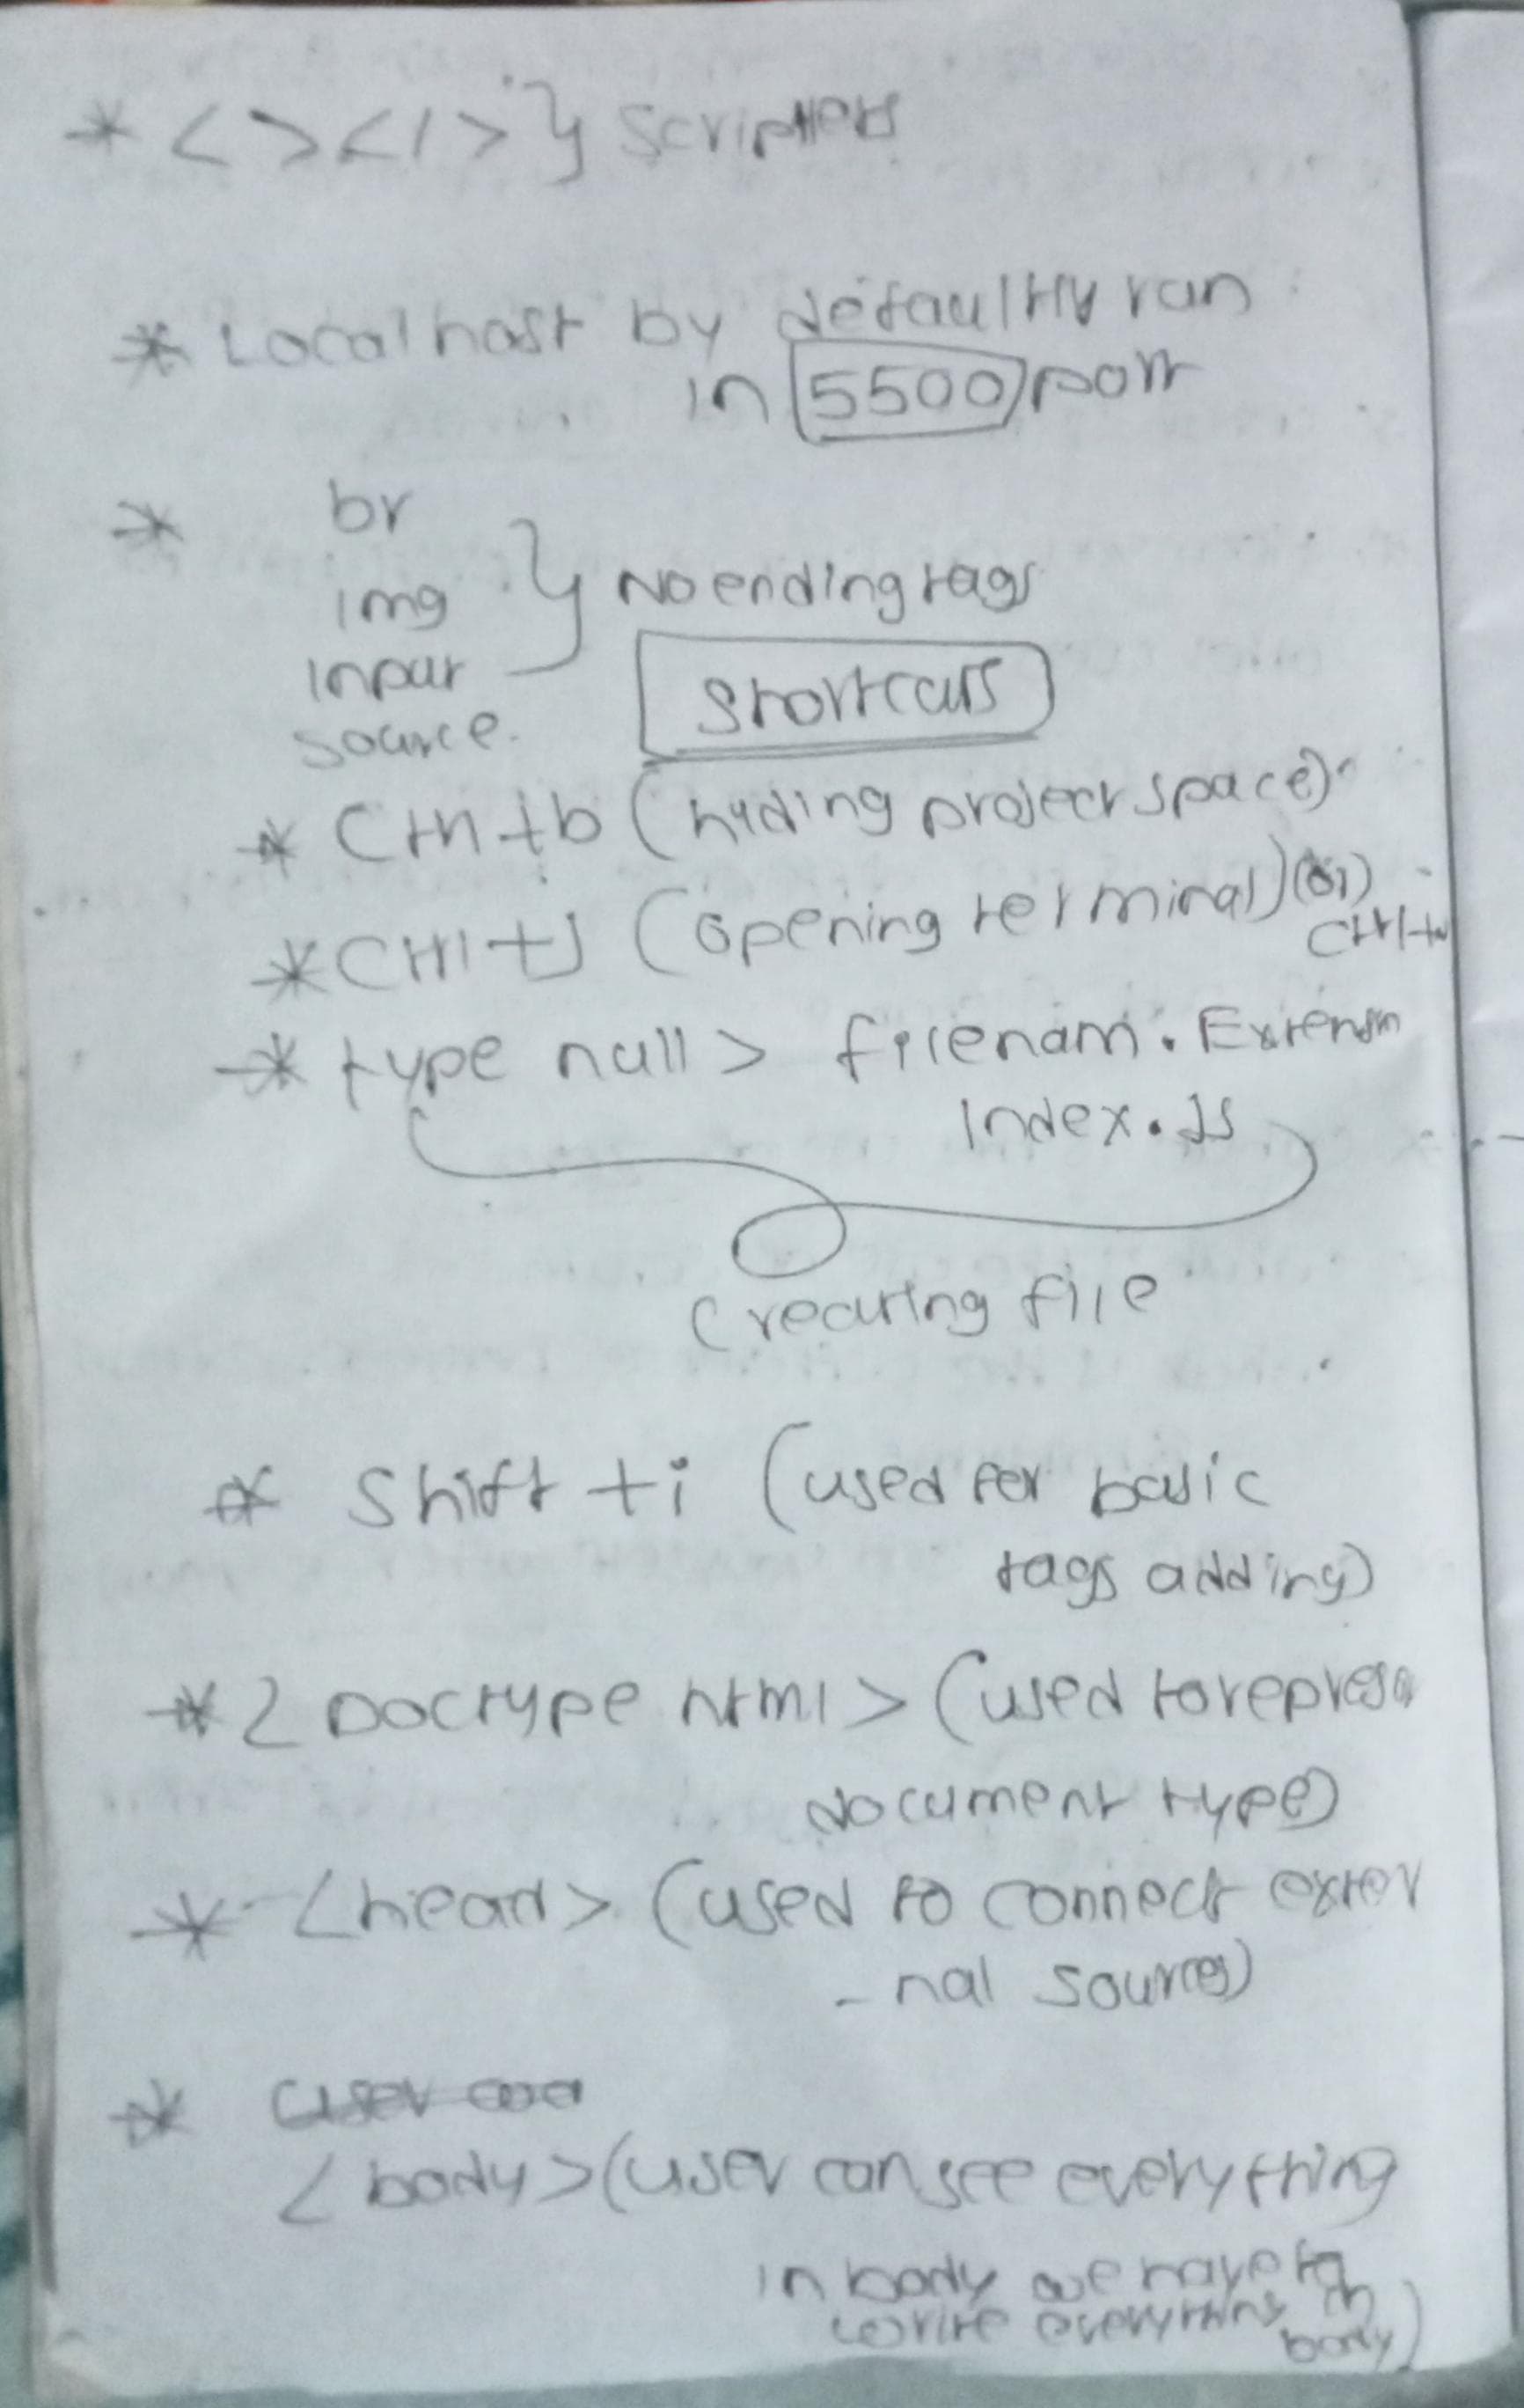 * < > </ > } scripters
* Localhost by defaultly run
in 5500 port
* br
img } No ending tags
input
source.
Shortcuts
* Ctrl + b (hyding project space)
* Ctrl + J (opening terminal) (or)
Ctrl +
* type null > filenam . Extensn
Index . Js
Creating file
* Shift + i (used for basic
tags adding)
* < Doctype html > (used to represe
document type)
* < head > (used to connect exter
- nal sources)
*
< body > (user can see everything
in body we have to
write everything in
body)